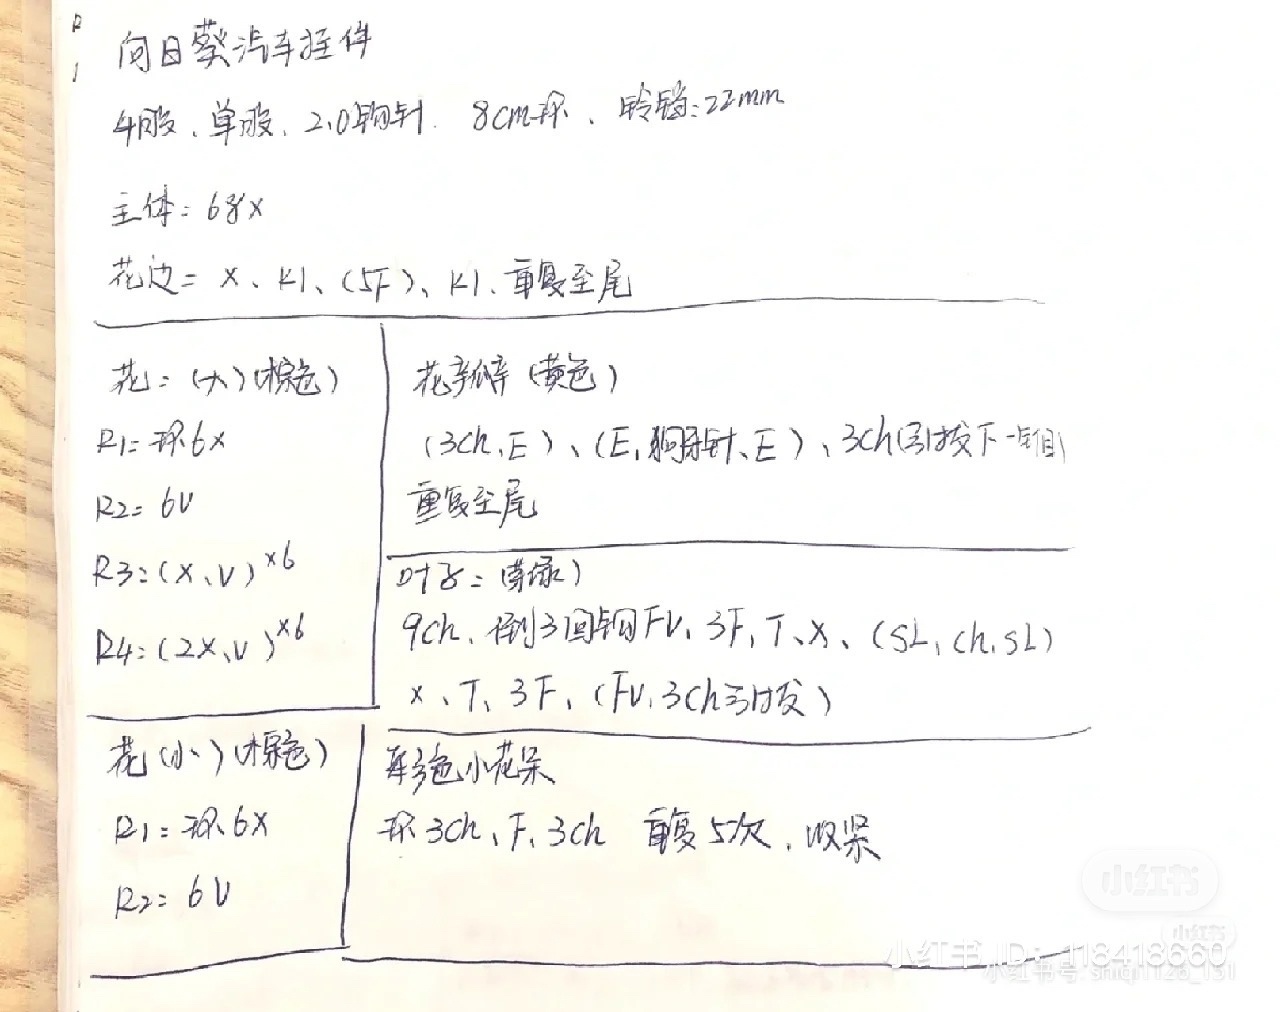 向日葵汽车挂件
4股、单股、2.0钩针. 8cm环、铃铛:22mm
主体:68X
花边= X、K1、(5F)、K1.重复至尾
花:(大)(棕色)
R1=环6X
R2=6V
R3:(X、V)×6
R4:(2X、V)×6
花瓣(黄色)
(3ch、E)、(E,狗牙针、E)、3ch引拔下一针目
重复至尾
叶子:(草绿)
9ch、倒3回钩FV、3F,T、X、(SL,ch,SL)
X、T、3F、(FV,3ch引拔)
花(小)(棕色)
R1=环6X
R2=6V
彩色小花朵
环3ch、F、3ch 重复5次,收紧
小红书
小红书
小红书 ID:118418660
小红书号:shiqi1126_131